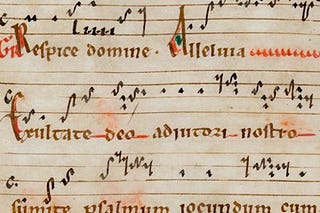 Respice domine. Alleluia
Exultate deo adiutori nostro
sumite psalmum iocundum cum